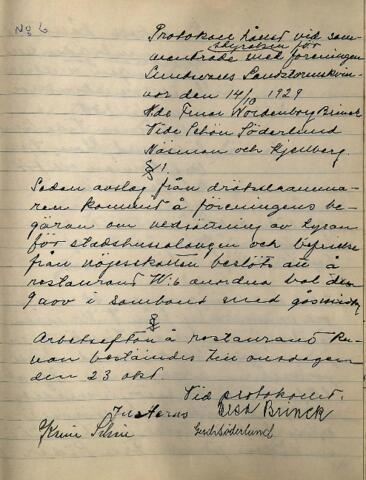 No 6
Protokoll hållet vid sam-
styrelsen för
manträde med föreningen
Sundsvalls Landstormskvin-
nor den 14/10 1929
Nde Fruar Nordenborg Brinck
Vide Schön Söderlund
Näsman och Kjellberg.
§ 1.
Sedan avslag från drätselkamma-
ren kommit å föreningens be-
gäran om nedsättning av hyran
för stadshussalongen och befrielse
från nöjesskatten beslöts att å
restaurant W:6 anordna bal den
9 nov i samband med gåsmiddag
§
Arbetsafton å restaurant
bestämdes till onsdagen
den 23 okt.
Vid protokollet:
Elsa Brinck
Justeras
Gerda Söderlund